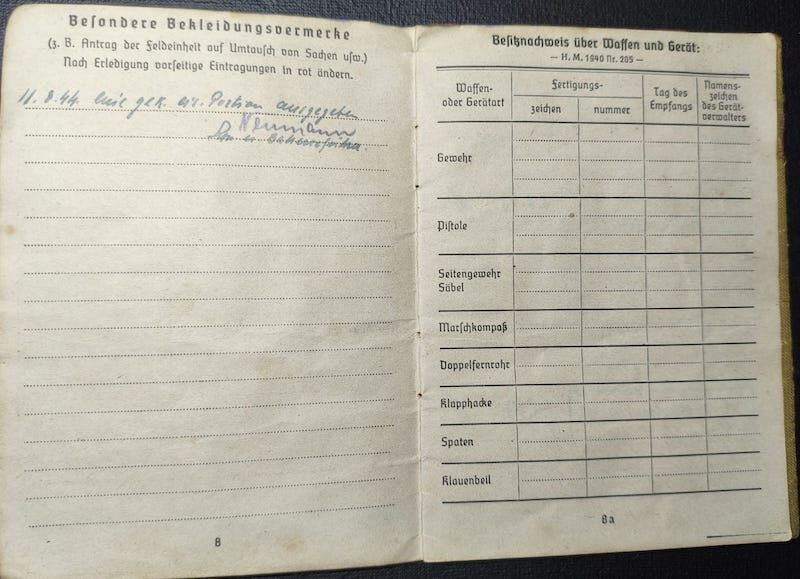 Besondere Bekleidungsvermerke
(z. B. Antrag der Feldeinheit auf Umtausch von Sachen usw.)
Nach Erledigung vorseitige Eintragungen in rot ändern.
11.8.44. gek. eis. Portion ausgegeben
Neumann
8
Besitznachweis über Waffen und Gerät:
— H. M. 1940 Nr. 205 —
Waffen- oder Gerätart
Fertigungs-
zeichen
nummer
Tag des Empfangs
Namens-zeichen des Gerät-verwalters
Gewehr
Pistole
Seitengewehr
Säbel
Marschkompaß
Doppelfernrohr
Klapphacke
Spaten
Klauenbeil
8a